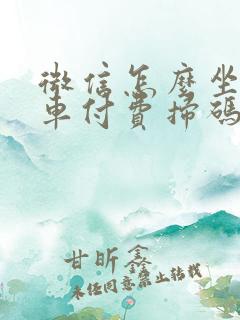 微信怎麼坐
車付費掃碼
甘昕鑫
未经同意禁止转载